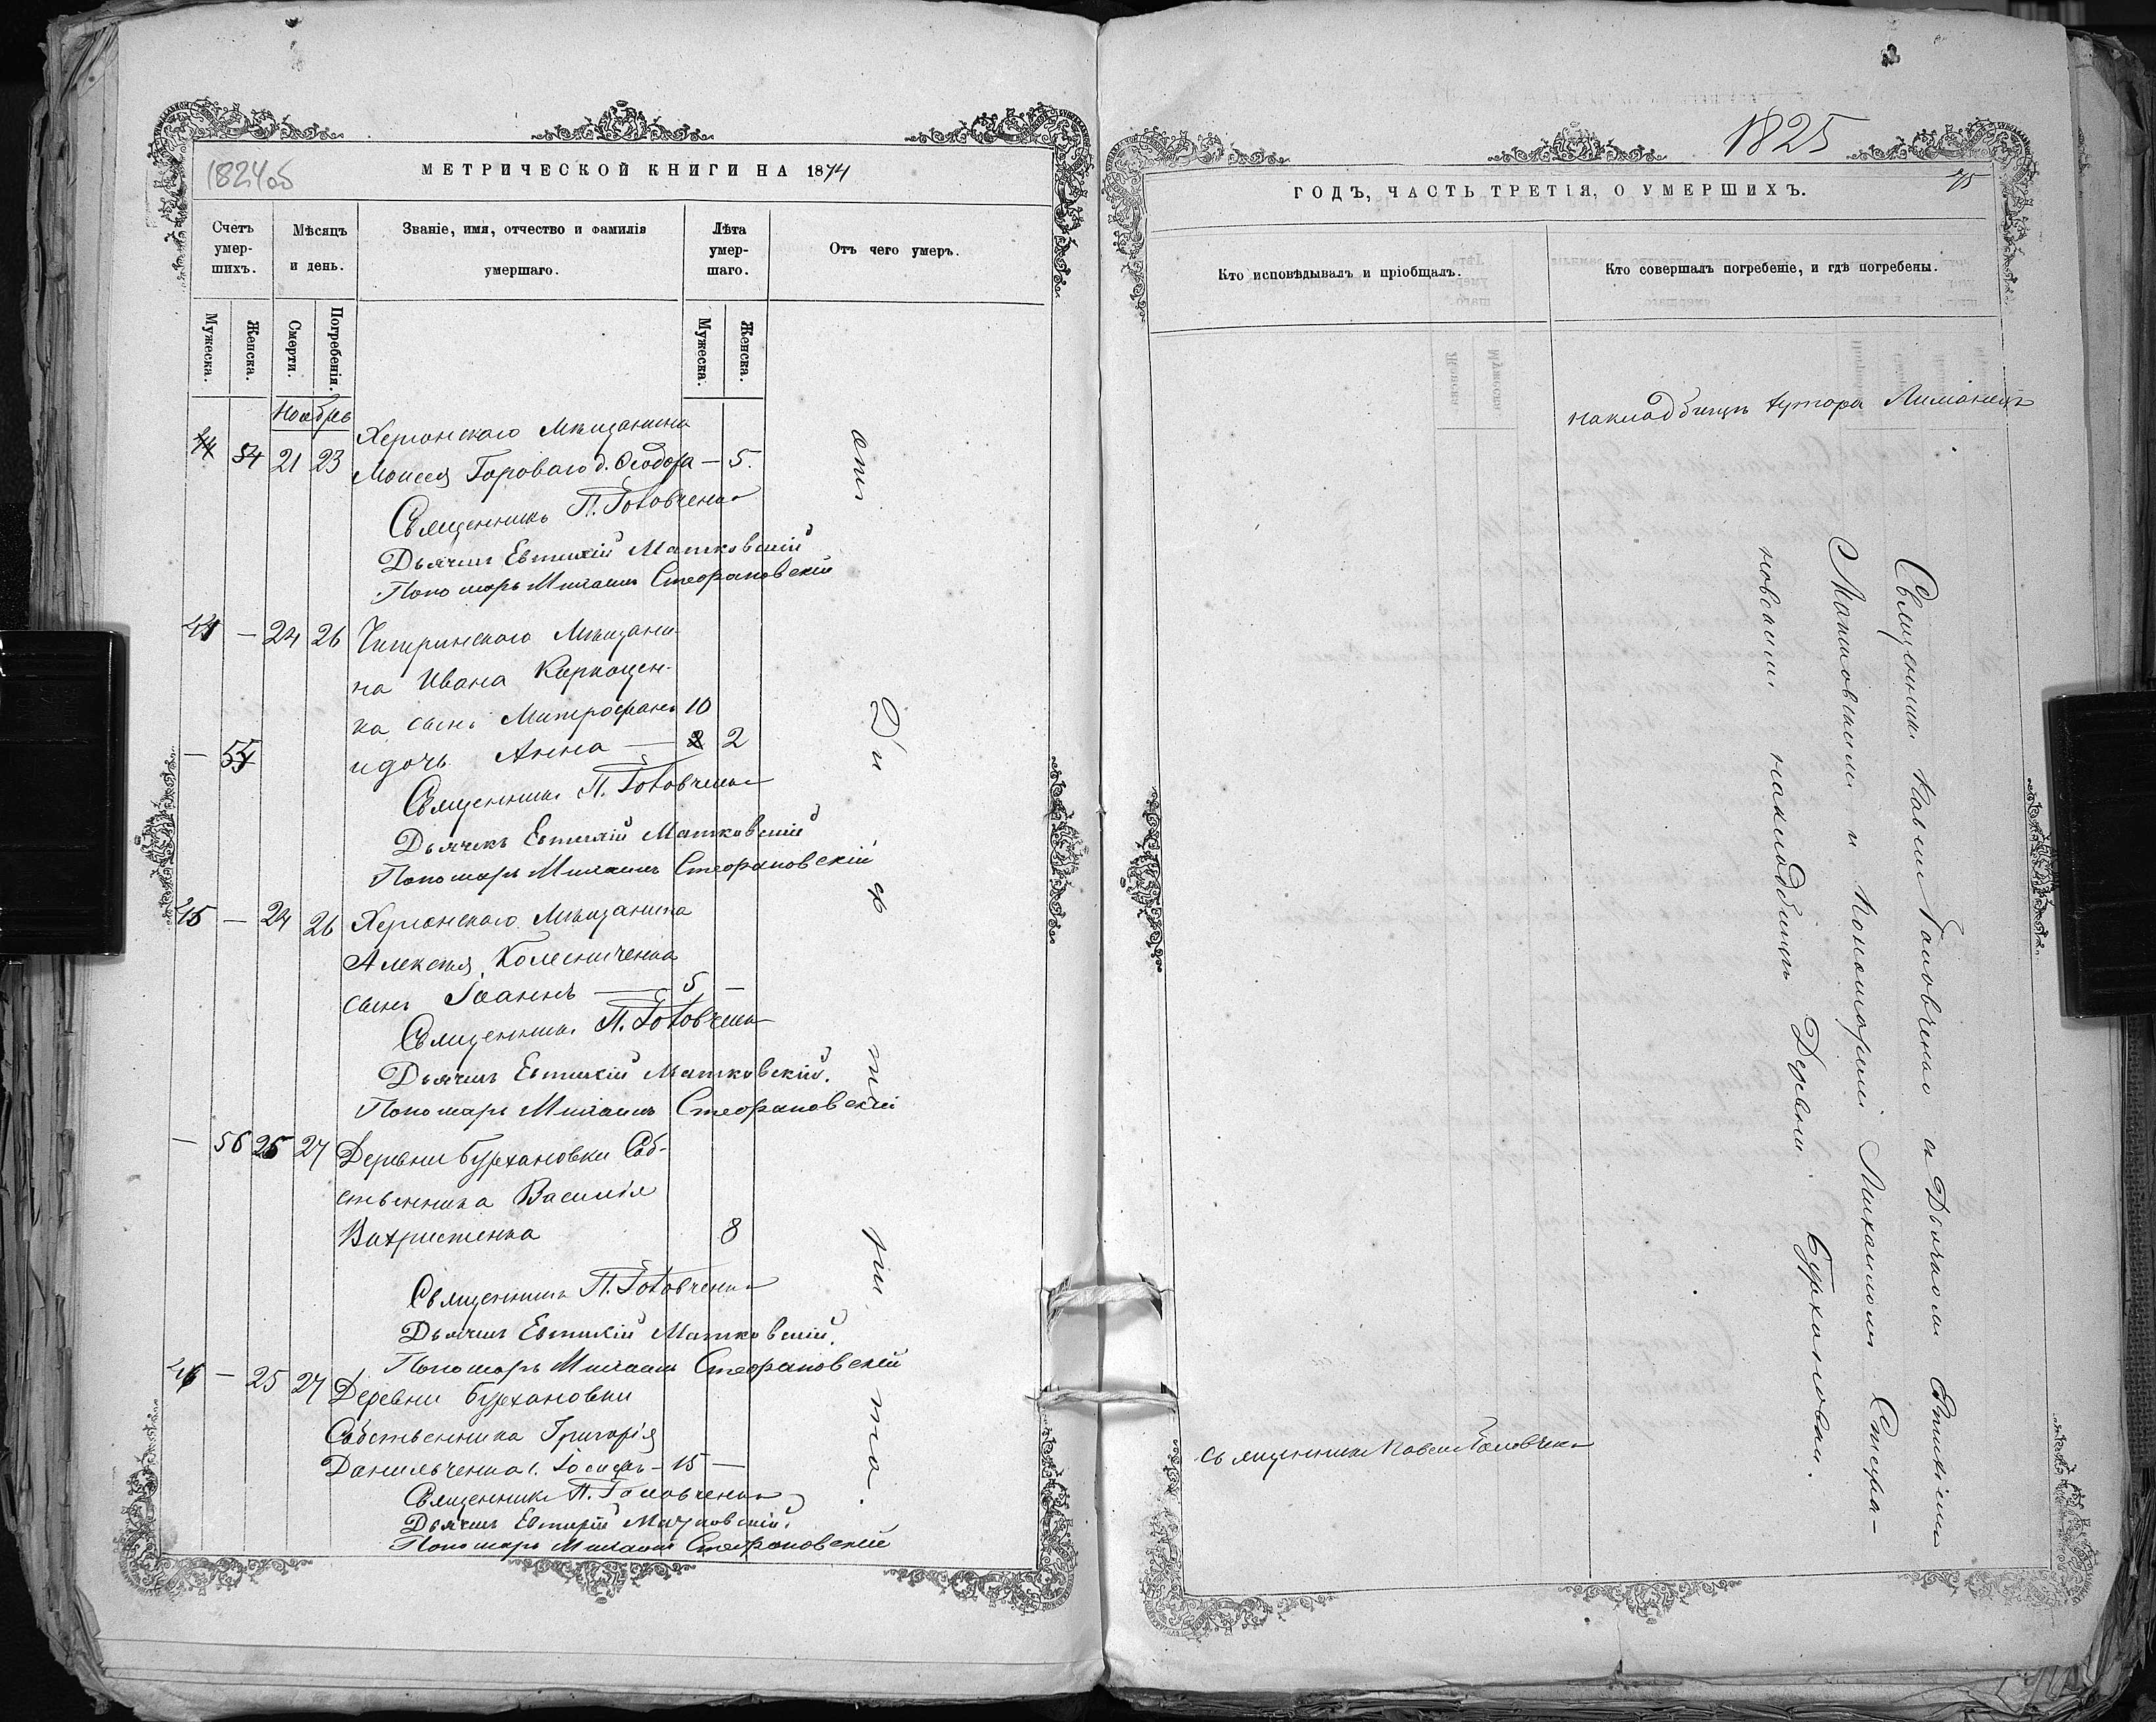 1824об
МЕТРИЧЕСКОЙ КНИГИ НА 1874
Счетъ умершихъ.
Мѣсяцъ и день.
Званіе, имя, отчество и фамилія умершаго.
Лѣта умершаго.
Отъ чего умеръ.
Мужеска.
Женска.
Смерти.
Погребенія.
Мужеска.
Женска.
Ноябрь
Херсонскаго Мѣщанина
54 21 23 Моисея Гороваго д. Ѳеодора — 5.
Священникъ П. Головченко
Дьячекъ Евтихій Матковскій
Пономарь Михаилъ Стефановскій
44 — 24 26 Чигринскаго Мѣщани-
на Ивана
ка сынъ Митрофанъ 10
— 55 и дочь Анна — 2
Священникъ П. Головченко
Дьячекъ Евтихій Матковскій
Пономарь Михаилъ Стефановскій
45 — 24 26 Херсонскаго Мѣщанина
Алексѣя Колесниченка
сынъ Іоаннъ — 5 —
Священникъ П. Головченко
Дьячекъ Евтихій Матковскій.
Пономарь Михаилъ Стефановскій
— 56 25 27 Деревни Бурхановки Соб-
ственника Василія
Вахристенка 8
Священникъ П. Головченко
Дьячекъ Евтихій Матковскій.
Пономарь Михаилъ Стефановскій
46 — 25 27 Деревни Бурхановки
Собственника Григорія
Данильченка с. Іосифъ — 15 —
Священникъ П. Головченко
Дьячекъ Евтихій Матковскій.
Пономарь Михаилъ Стефановскій
отъ Дифтерита.
1825
75
ГОДЪ, ЧАСТЬ ТРЕТІЯ, О УМЕРШИХЪ.
Кто исповѣдывалъ и пріобщалъ.
Кто совершалъ погребеніе, и гдѣ погребены.
на кладбищѣ хутора Лиманецъ
Священникъ Павелъ Головченко съ Дьячкомъ Евтихіемъ
Матковскимъ и Пономаремъ Михаиломъ Стефа-
новскимъ на кладбищѣ Деревни Бурхановки.
Священникъ Павелъ Головченко